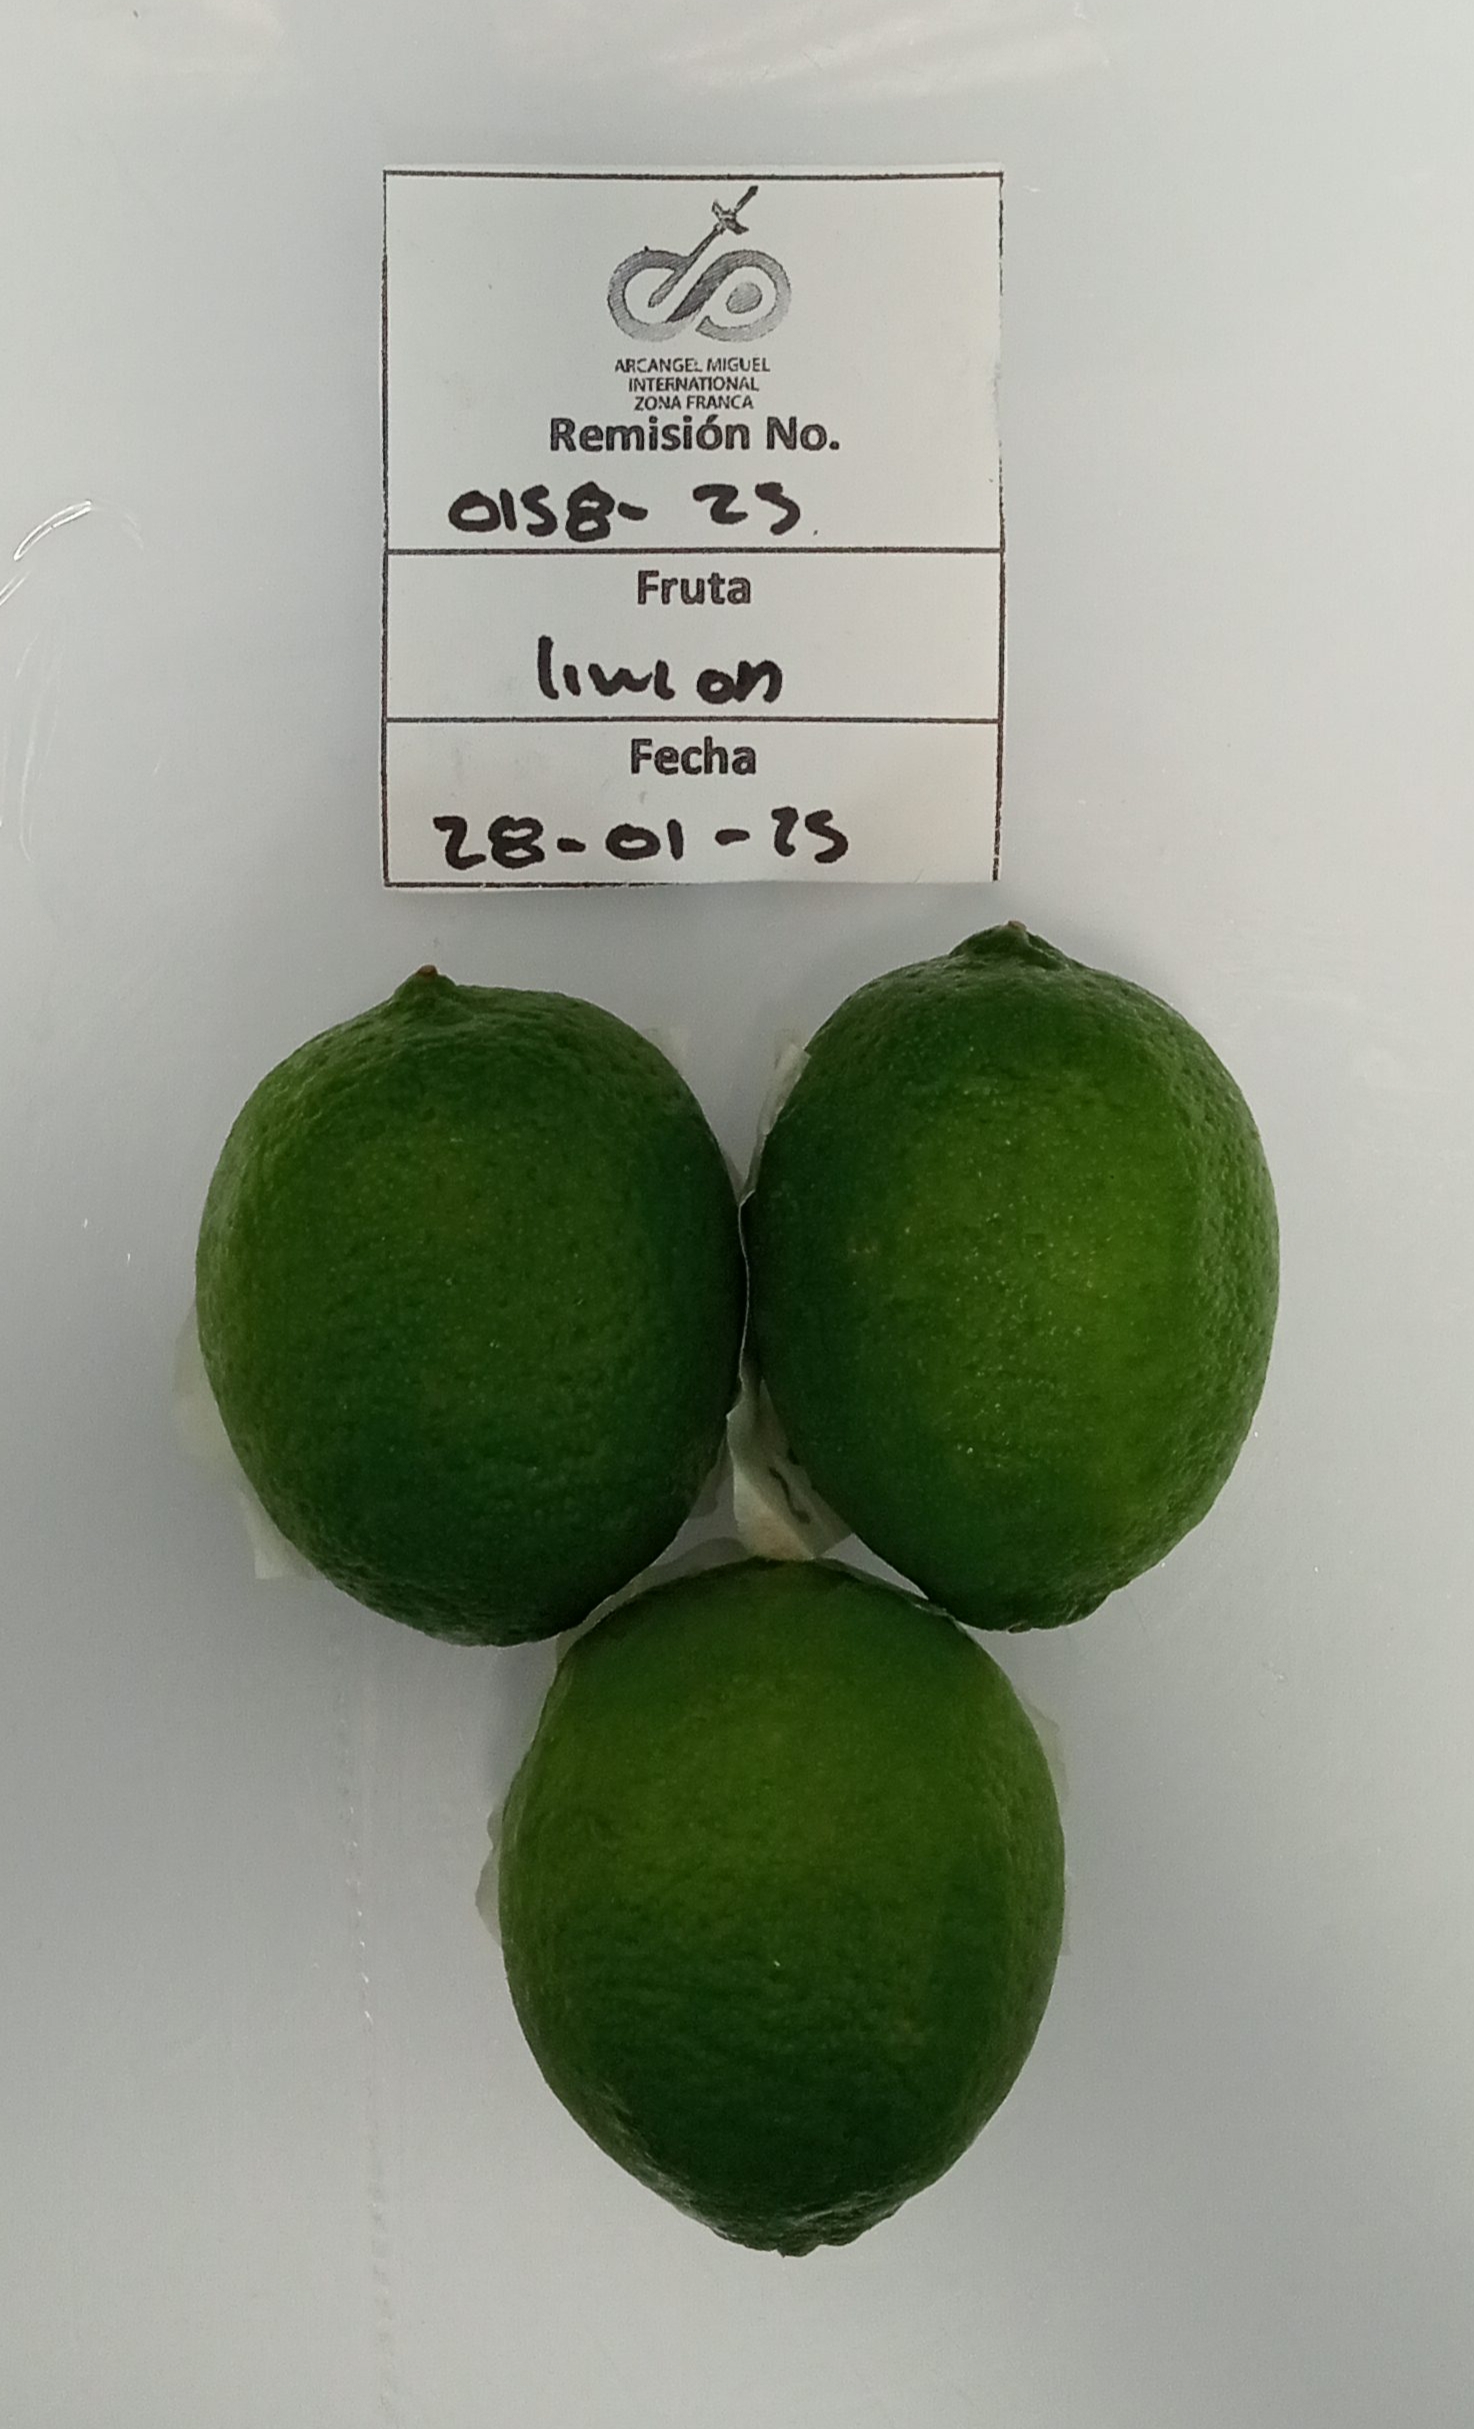 ARCANGEL MIGUEL
INTERNATIONAL
ZONA FRANCA
Remisión No.
0158-25
Fruta
limon
Fecha
28-01-25